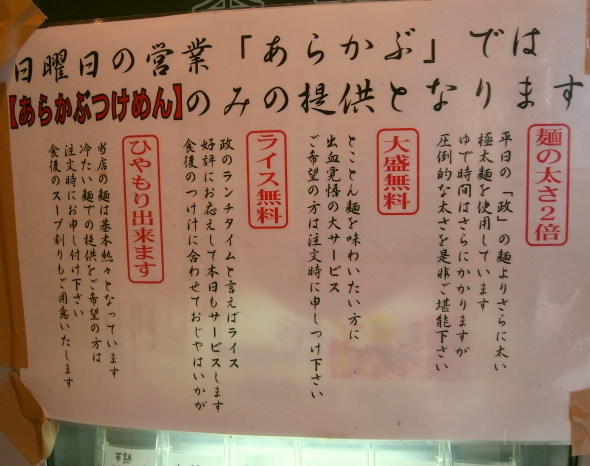 日曜日の営業「あらかぶ」では
【あらかぶつけめん】のみの提供となります
麺の太さ2倍
平日の「政」の麺よりさらに太い
極太麺を使用しています
ゆで時間はさらにかかりますが
圧倒的な太さを是非ご堪能下さい
大盛無料
とことん麺を味わいたい方に
出血覚悟の大サービス
ご希望の方は注文時に申しつけ下さい
ライス無料
政のランチタイムと言えばライス
好評にお応えして本日もサービスします
食後のつけ汁に合わせておじやはいかが
ひやもり出来ます
当店の麺は基本熱々となっています
冷たい麺での提供をご希望の方は
注文時にお申し付け下さい
食後のスープ割りもご用意いたします